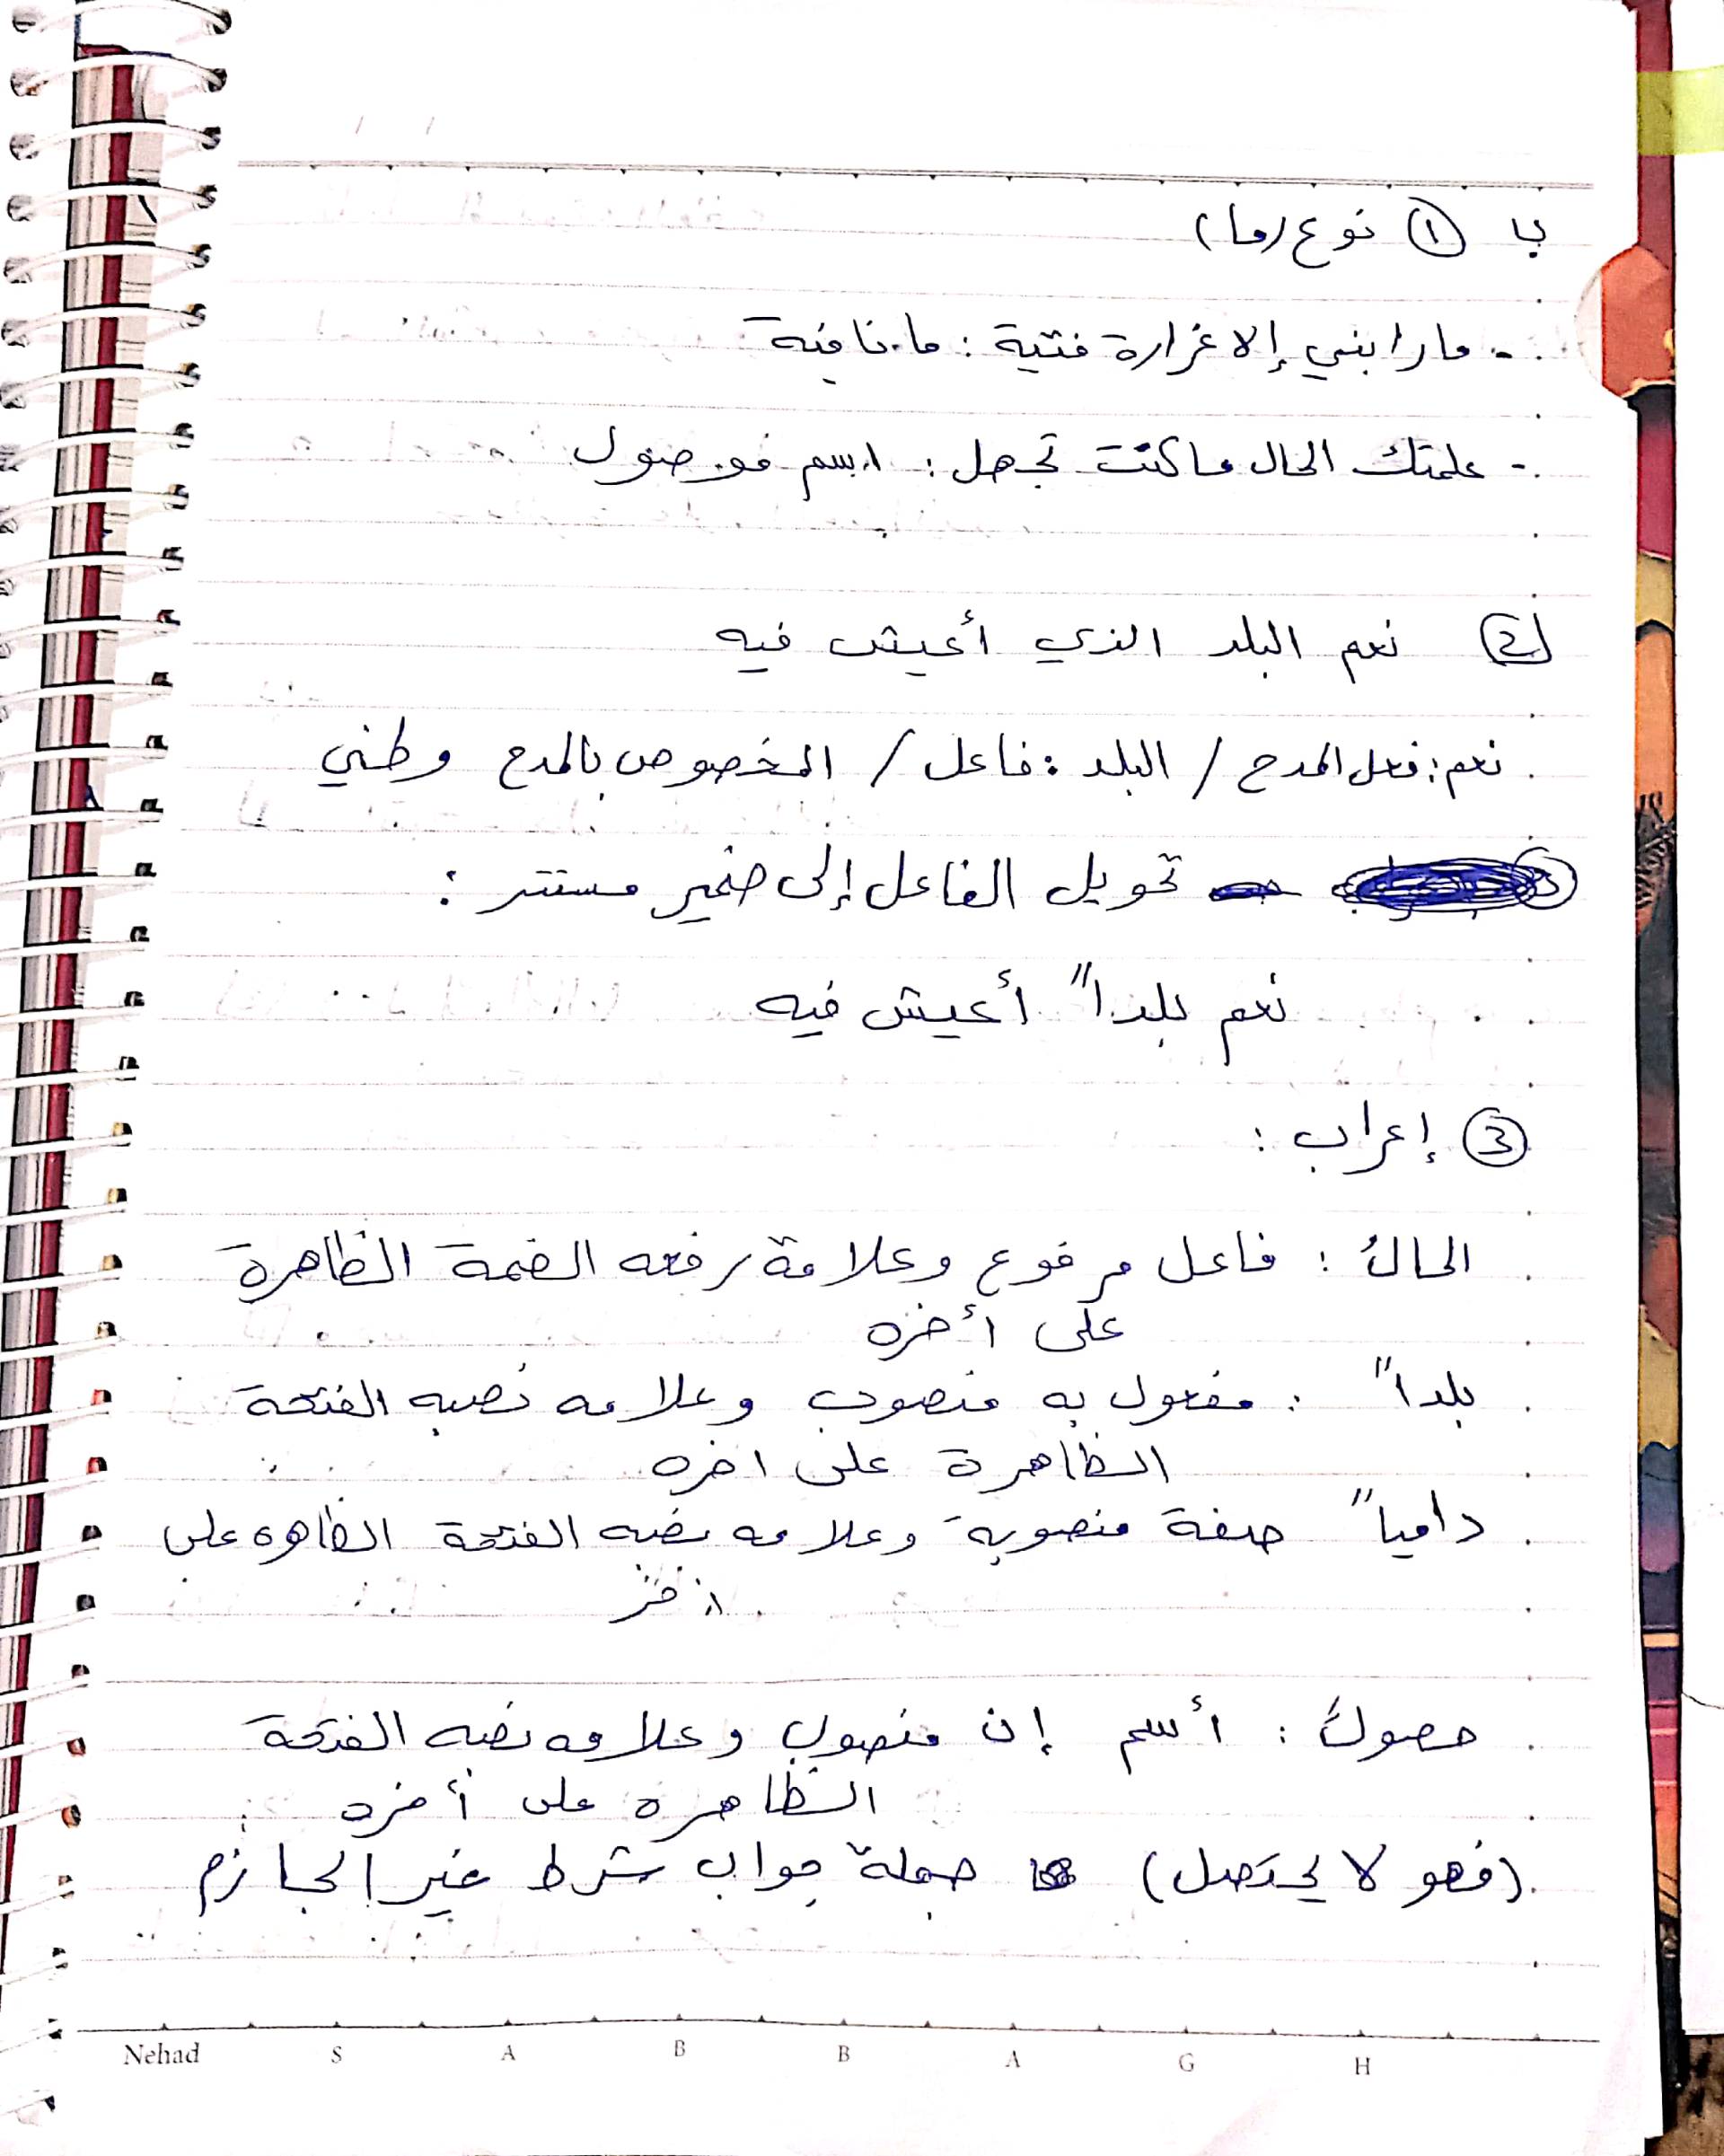 ب ① نوع (ما)
- ما رابني إلا غرارة فتية : ما نافية
- علمتك الحال ما كنت تجهل : اسم موصول
② نعم البلد الذي أعيش فيه
نعم : فعل المدح / البلد : فاعل / المخصوص بالمدح وطني
تحويل الفاعل إلى ضمير مستتر :
نعم بلداً أعيش فيه
③ إعراب :
الحالُ : فاعل مرفوع وعلامة رفعه الضمة الظاهرة
على أخره
بلداً : مفعول به منصوب وعلامه نصبه الفتحة
الظاهرة على اخره
دامياً صفة منصوبة وعلامه نصبه الفتحة الظاهره على
اخر
حصولَ : أسم إن منصوب وعلامه نصبه الفتحة
الظاهره على أخره
(فهو لا يحتمل) جملة جواب شرط غير الجازم
Nehad S A B B A G H